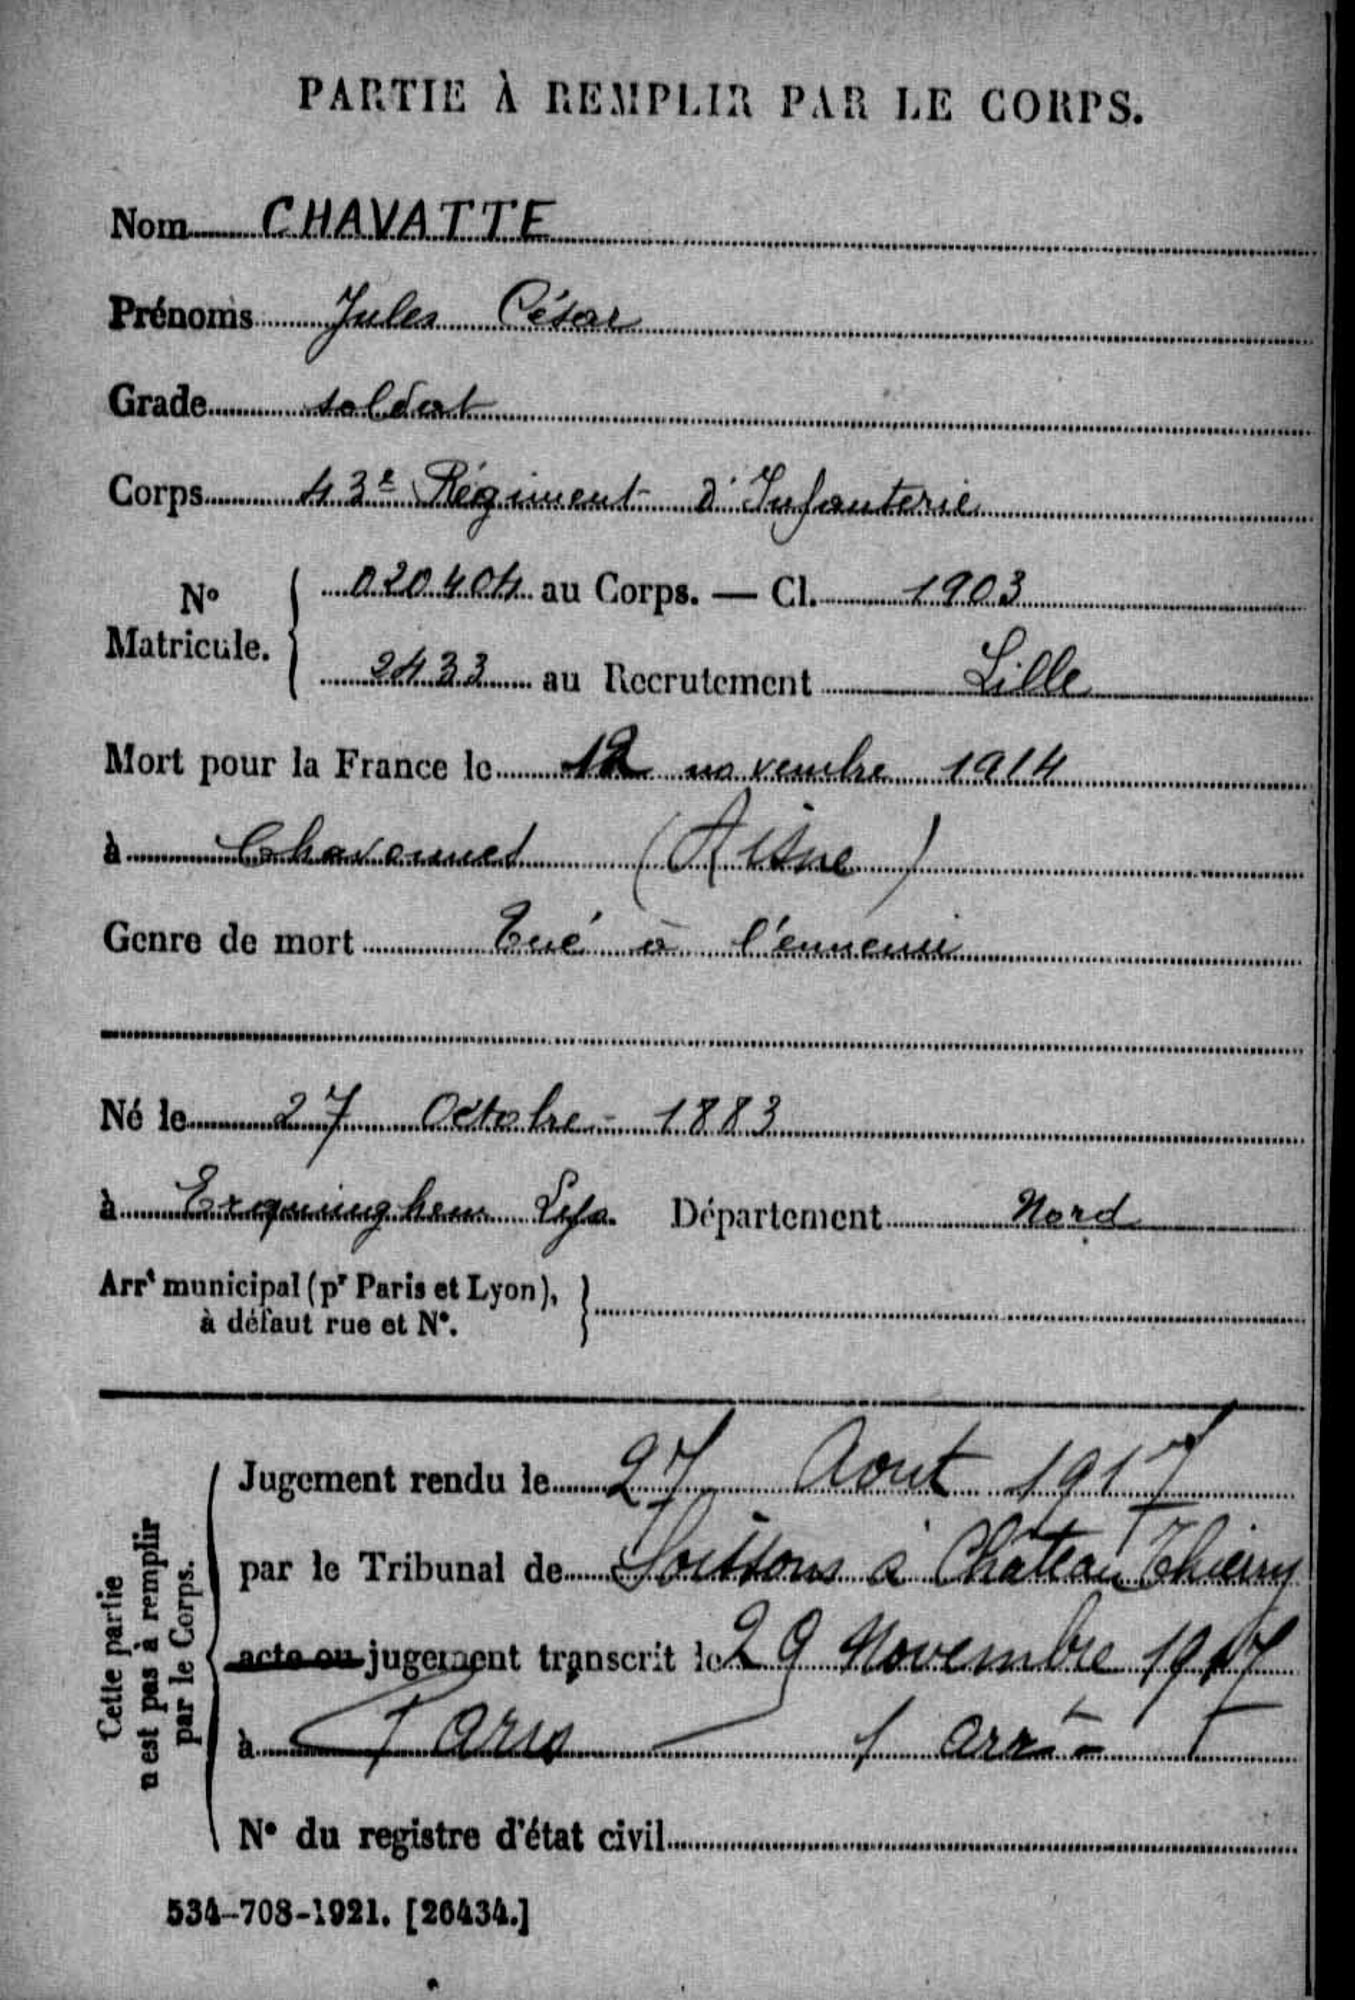 PARTIE À REMPLIR PAR LE CORPS.
Nom CHAVATTE
Prénoms Jules César
Grade soldat
Corps 43e Régiment d'Infanterie
No Matricule. { 020404 au Corps. — Cl. 1903
2433 au Recrutement Lille
Mort pour la France le 12 novembre 1914
à Chavonnes (Aisne)
Genre de mort Tué à l'ennemi
Né le 27 Octobre 1883
à Erquinghem Lys. Département Nord
Arrt municipal (pr Paris et Lyon), }
à défaut rue et No.
Cette partie
n'est pas à remplir
par le Corps.
Jugement rendu le 27 Aout 1917
par le Tribunal de Soissons à Château Thierry
acte ou jugement transcrit le 29 Novembre 1917
à Paris 1 arrt
No du registre d'état civil
534-708-1921. [26434.]